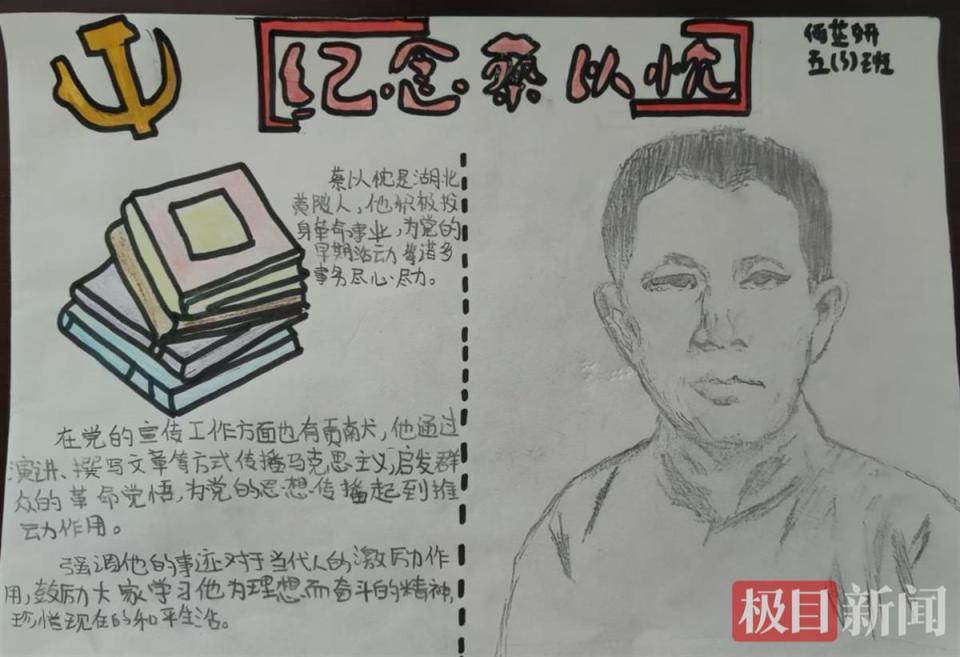 纪·念·蔡以忱
蔡以忱是湖北
黄陂人，他积极投
身革命事业，为党的
早期活动等诸多
事务尽心尽力。
在党的宣传工作方面也有贡献，他通过
演讲、撰写文章等方式传播马克思主义，启发群
众的革命觉悟，为党的思想传播起到推
动作用。
强调他的事迹对于当代人的激励作
用，鼓励大家学习他为理想而奋斗的精神，
珍惜现在的和平生活。
极目新闻